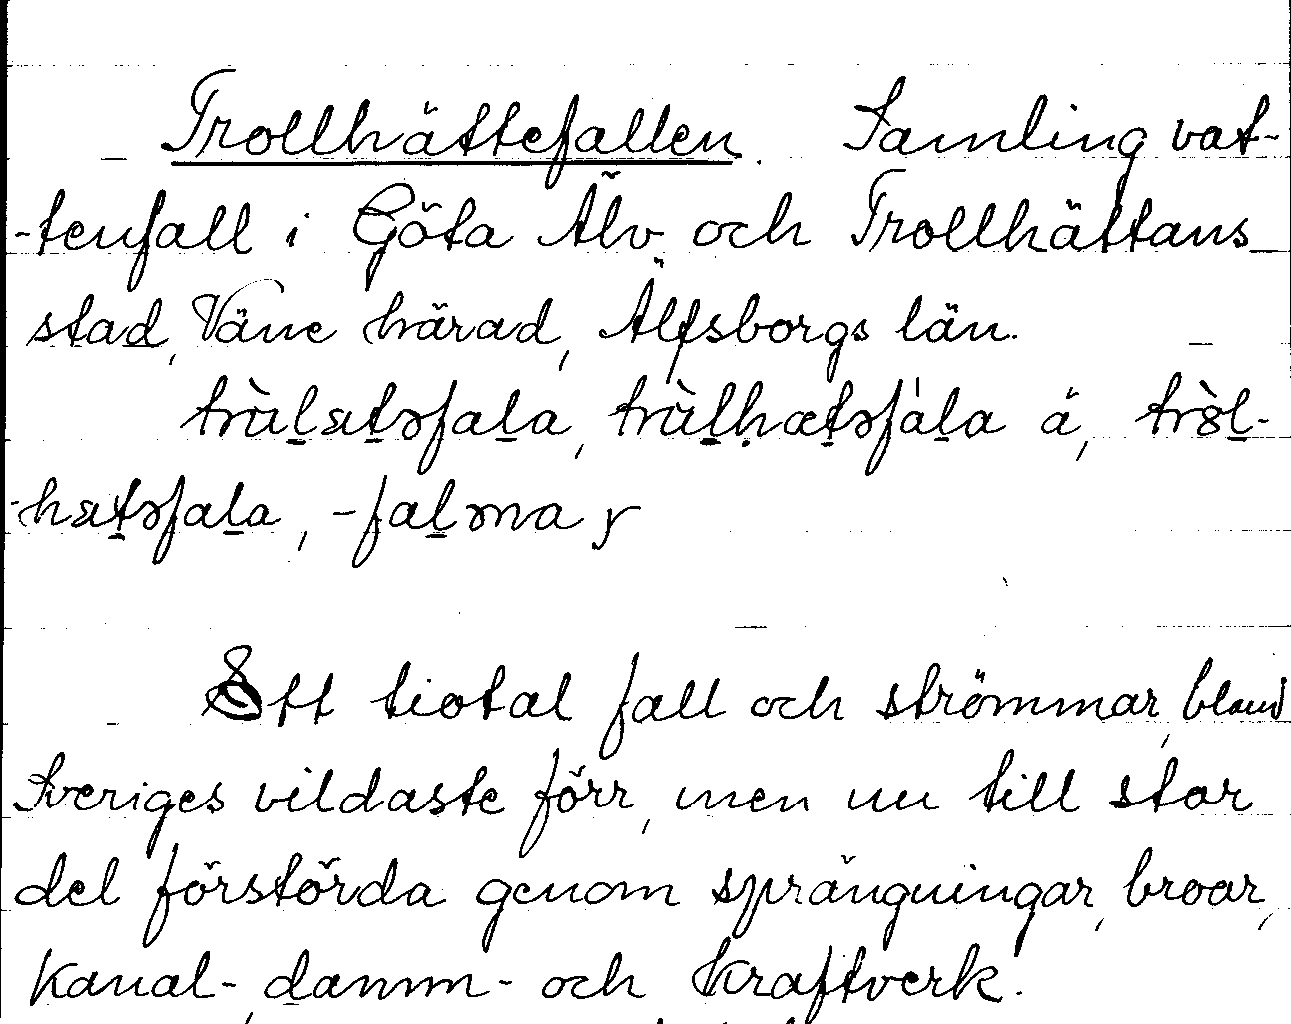 Trollhättefallen. Samling vat-
-tenfall i Göta Älv och Trollhättans
stad, Väne härad, Älfsborgs län.
trùlatəfala, trùlhætəfála ä, tròl-
-hatəfala, -faləna y
Ett tiotal fall och strömmar, bland
Sveriges vildaste förr, men nu till stor
del förstörda genom sprängningar, broar,
kanal-, damm- och kraftverk.